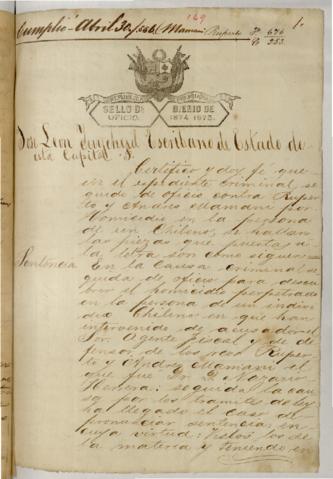 Cumplió Abril 30/886 (Mamani Ruperto F. 676
169 1.
353.
SELLO DE OFICIO.
BIENIO DE 1874 1875.
José Leon Escribano de Estado de
esta Capital &.
Certifico y doy fé que
en el espediente criminal se-
guido de oficio contra Ruper-
to y Andres Mamani por
homicidio en la persona
de un Chileno, se hallan
las piezas que puestas a
la letra son como siguen=
Sentencia En la causa criminal se-
guida de oficio para descu-
brir el homicidio perpetrado
en la persona de un indivi-
duo Chileno en que han
intervenido de acusador el
Sor. Agente fiscal y de de-
fensor de los reos Ruper-
to y Andres Mamani el
que fue Dr. D. Nazario
Herrera: seguida la cau-
sa por los tramites de ley
ha llegado el caso de
pronunciar sentencia; en
cuya virtud: Vistos los de
la materia y teniendo en